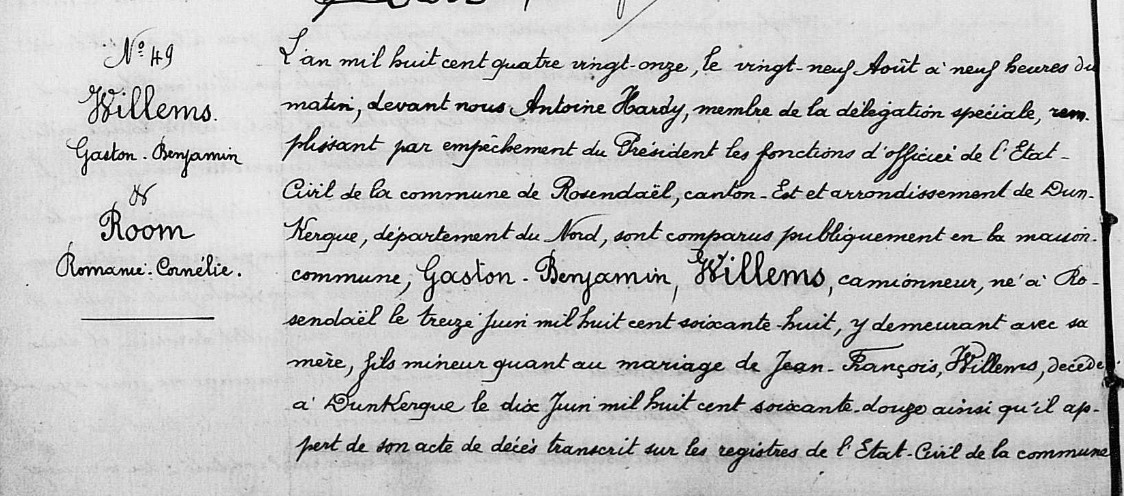 Nº 49
Willems.
Gaston-Benjamin
&
Room
Romanie-Cornélie.
L'an mil huit cent quatre vingt-onze, le vingt-neuf Août à neuf heures du
matin, devant nous Antoine Hardy, membre de la délégation spéciale, rem-
plissant par empêchement du Président les fonctions d'officier de l'Etat-
Civil de la commune de Rosendaël, canton-Est et arrondissement de Dun-
Kerque, département du Nord, sont comparus publiquement en la maison-
commune, Gaston-Benjamin, Willems, camionneur, né à Ro-
sendaël le treize Juin mil huit cent soixante-huit, y demeurant avec sa
mère, fils mineur quant au mariage de Jean-François, Willems, décédé
à DunKerque le dix Juin mil huit cent soixante-douze ainsi qu'il ap-
pert de son acte de décès transcrit sur les registres de l'Etat-Civil de la commune